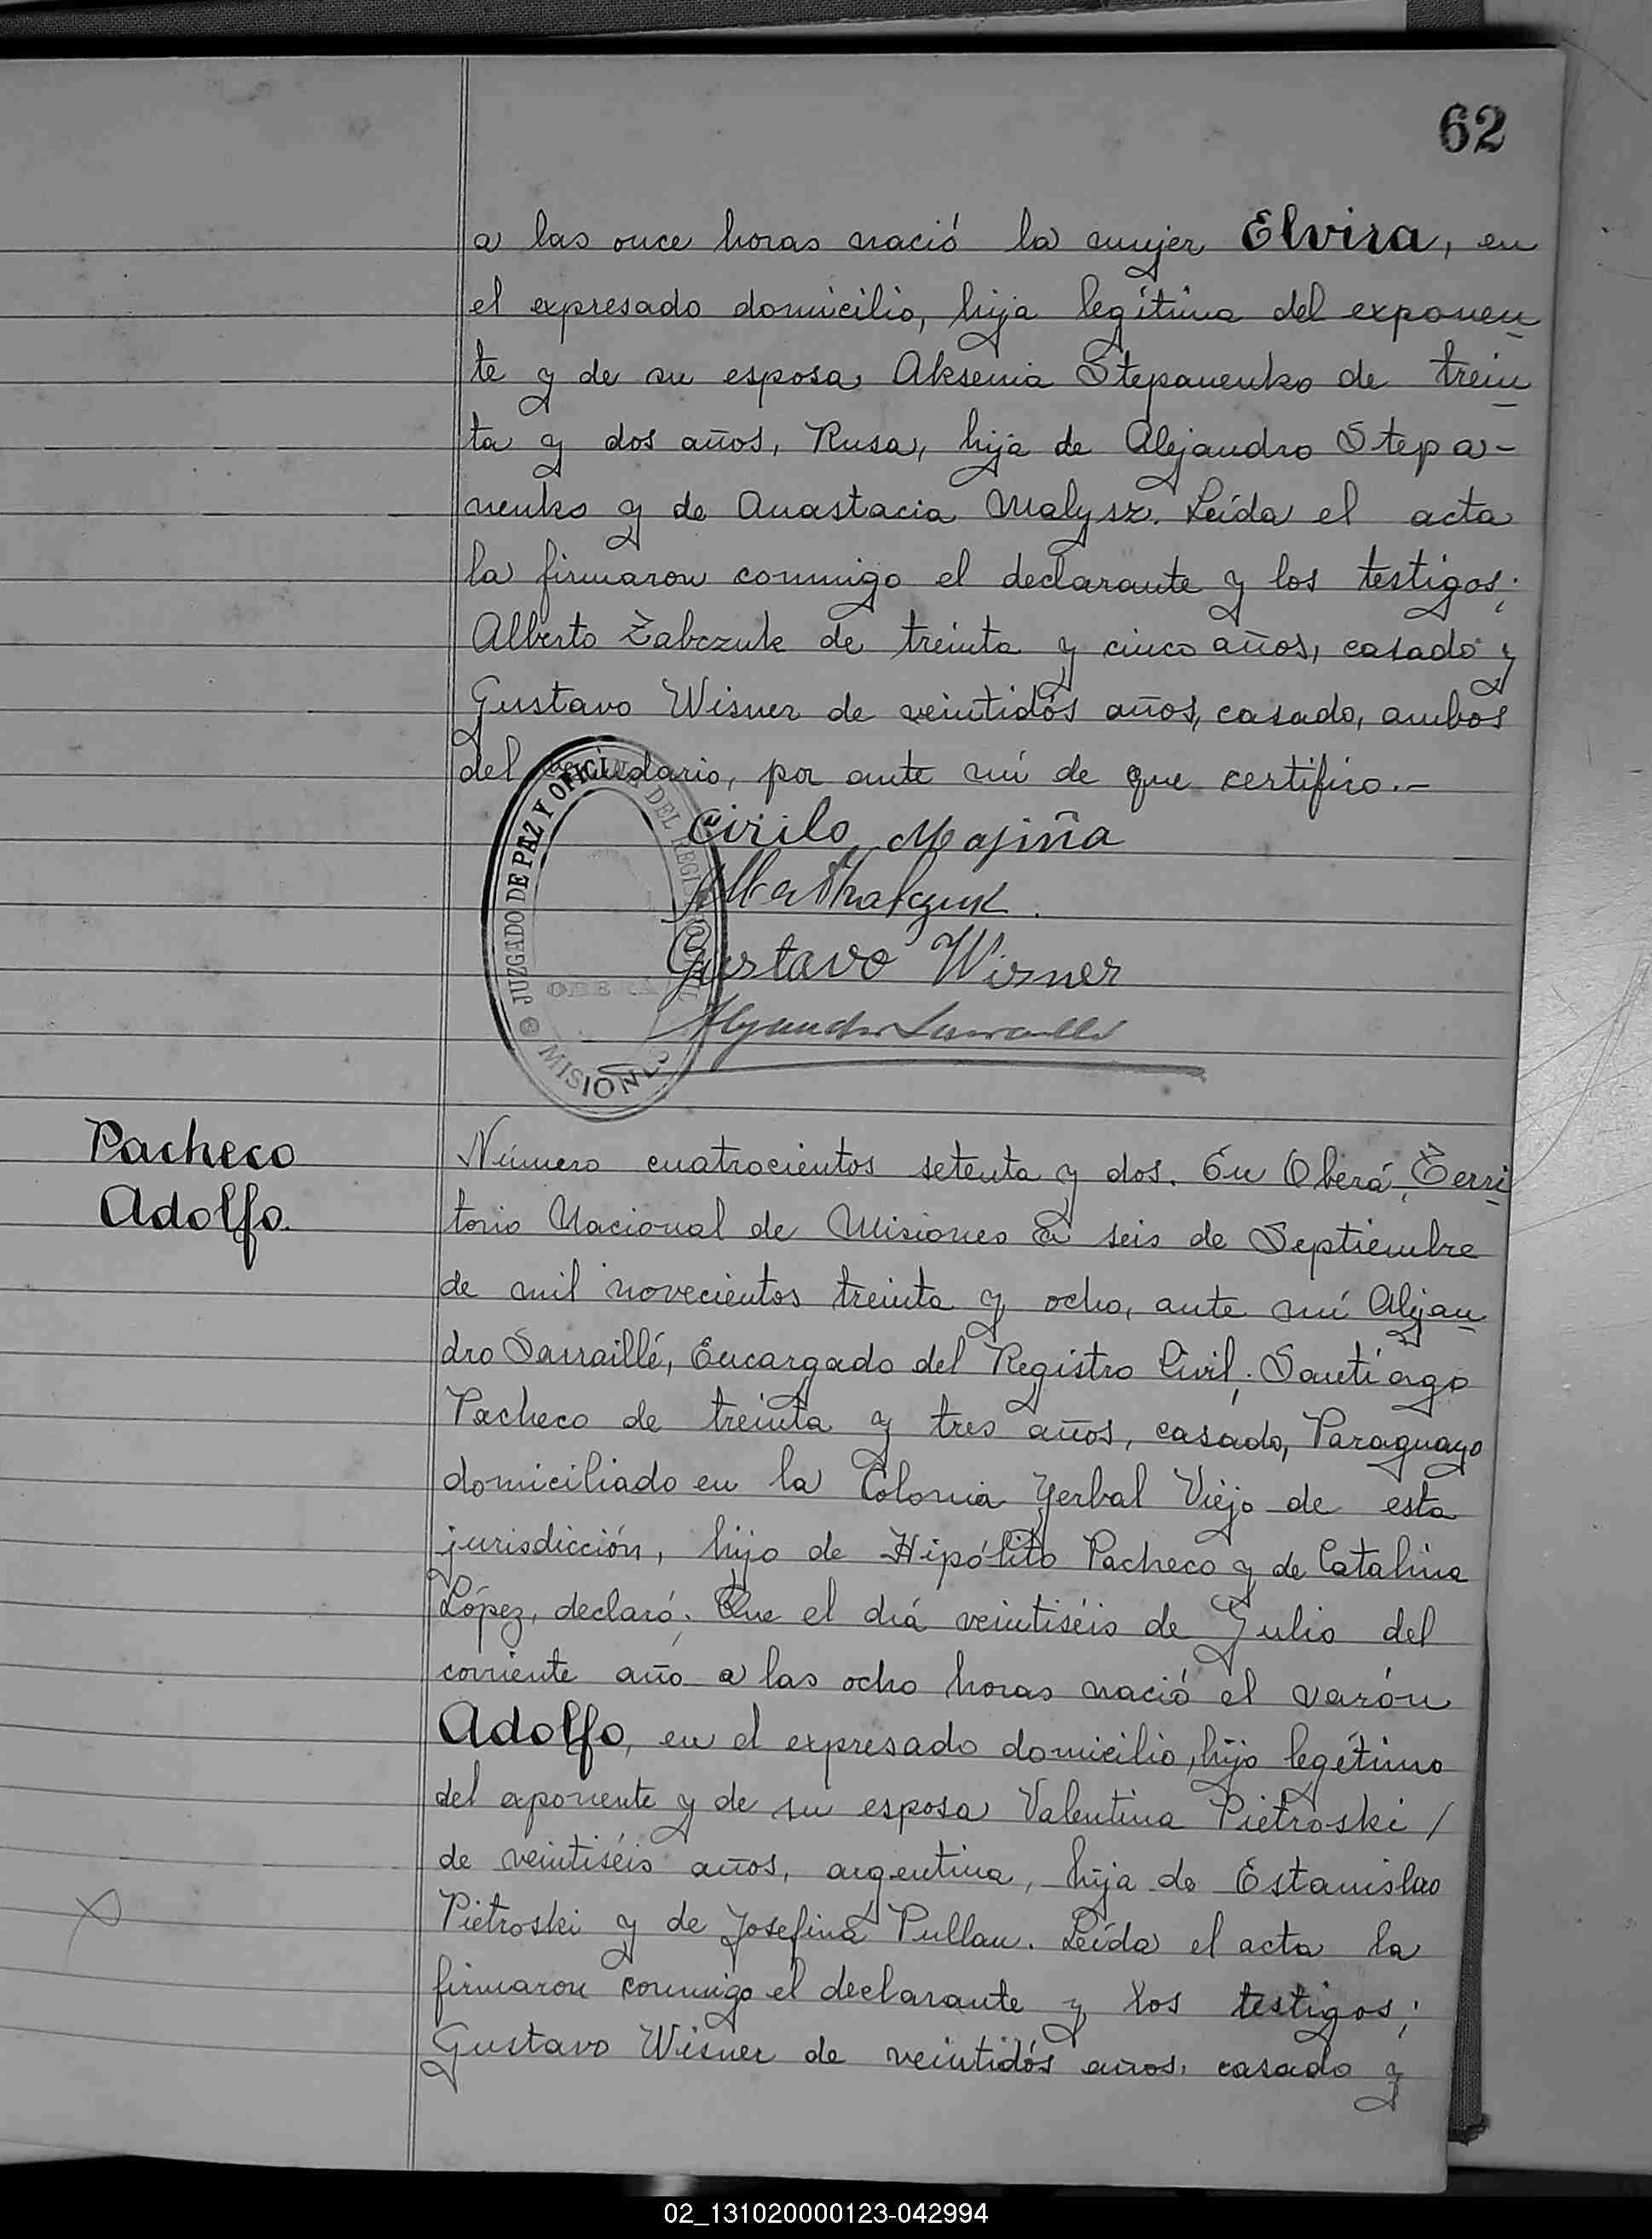 62
a las once horas nació la mujer Elvira, en
el expresado domicilio, hija legítima del exponen
te y de su esposa Aksenia Stepanenko de trein
ta y dos años, Rusa, hija de Alejandro Stepa-
nenko y de Anastacia Malysz. Leída el acta
la firmaron conmigo el declarante y los testigos;
Alberto Zabczuk de treinta y cinco años, casado y
Gustavo Wisner de veintidós años, casado, ambos
del vecindario, por ante mí de que certifico.-
JUZGADO DE PAZ Y OFICINA DEL REGISTRO CIVIL
OBERÁ
MISIONES
Cirilo
Gustavo Wisner
Pacheco
Adolfo.
Número cuatrocientos setenta y dos. En Oberá, Terri
torio Nacional de Misiones a seis de Septiembre
de mil novecientos treinta y ocho, ante mí Alejan
dro Sarraillé, Encargado del Registro Civil; Santiago
Pacheco de treinta y tres años, casado, Paraguayo
domiciliado en la Colonia Yerbal Viejo de esta
jurisdicción, hijo de Hipólito Pacheco y de Catalina
López, declaró; Que el día veintiséis de Julio del
corriente año a las ocho horas nació el varón
Adolfo, en el expresado domicilio, hijo legítimo
del exponente y de su esposa Valentina Pietroski /
de veintiséis años, argentina, hija de Estanislao
Pietroski y de Josefina Pullan. Leída el acta la
firmaron conmigo el declarante y los testigos;
Gustavo Wisner de veintidós años, casado y
02_131020000123-042994